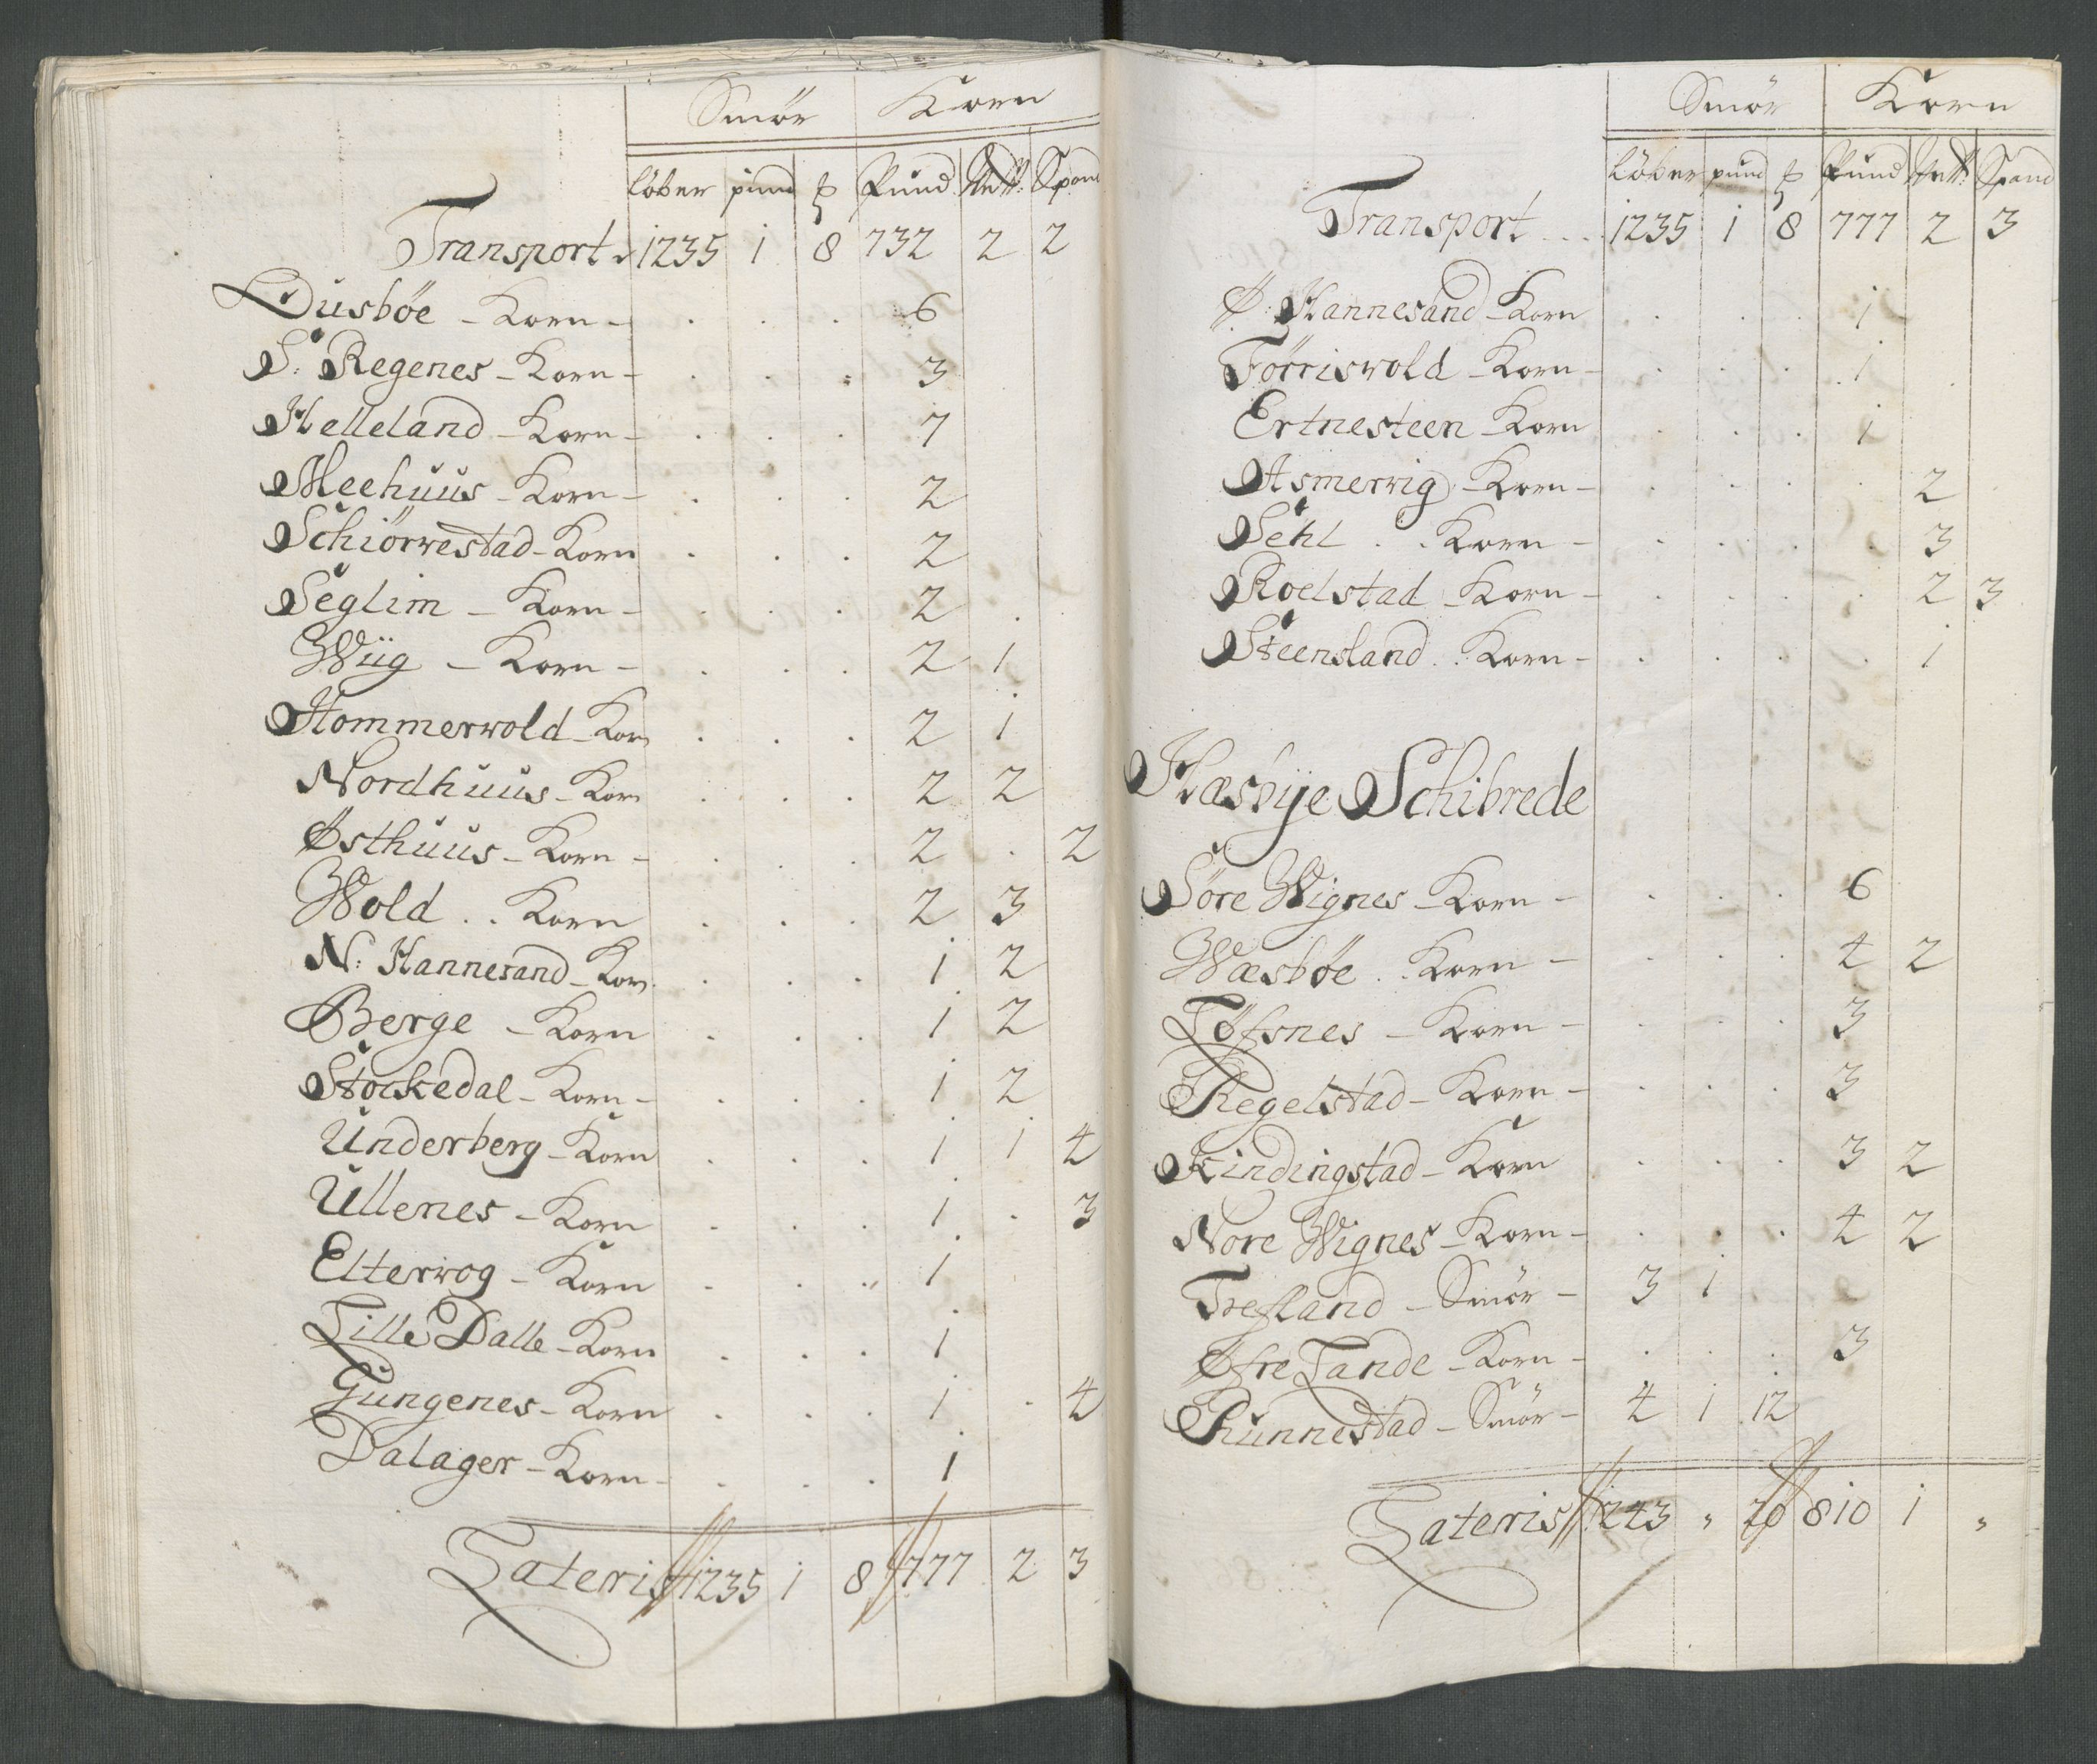 Smör Korn
löber pund ℔ Pund Vett: Spand
Transport 1235 1 8 732 2 2
Dusbøe - Korn - 6
S: Regenes - Korn - 3
Helleland - Korn - 7
Meehuus - Korn - 2
Schiörvestad - Korn 2
Seglim - Korn - 2
Wiig - Korn - 2 1
Hommervold - Korn 2 1
Nordhuus - Korn 2 2
Østhuus - Korn - 2 . 2
Wold .. Korn 2 3
N: Hannesand - Korn 1 2
Berge - Korn 1 2
Stockedal - Korn - 1 2
Underberg - Korn 1 1 4
Ullenes - Korn 1 . 3
Eltervog - Korn 1
Lille Dalle - Korn 1
Tungenes - Korn 1 . 4
Dalager - Korn - 1
Lateris 1235 1 8 777 2 3
Smör Korn
löber pund ℔ Pund Vett: Spand
Transport ... 1235 1 8 777 2 3
Ø: Hannesand - Korn 1
Törrisvold - Korn - 1
Ertnesteen - Korn 1
Asmervig - Korn - 2
Sehl .. Korn - 3
Roelstad - Korn - 2 3
Steensland .. Korn - 1
Hæsbÿe Schibrede
Söre Wignes - Korn - 6
Wæsbøe .. Korn - 4 2
Løfsnes - Korn - 3
Regelstad - Korn - 3
Kindingstad - Korn 3 2
Nore Wignes - Korn - 4 2
Trefland - Smör - 3 1
Øfre Lande - Korn - 3
Runnestad - Smör - 4 1 12
Lateris 1243 " 20 810 1 "